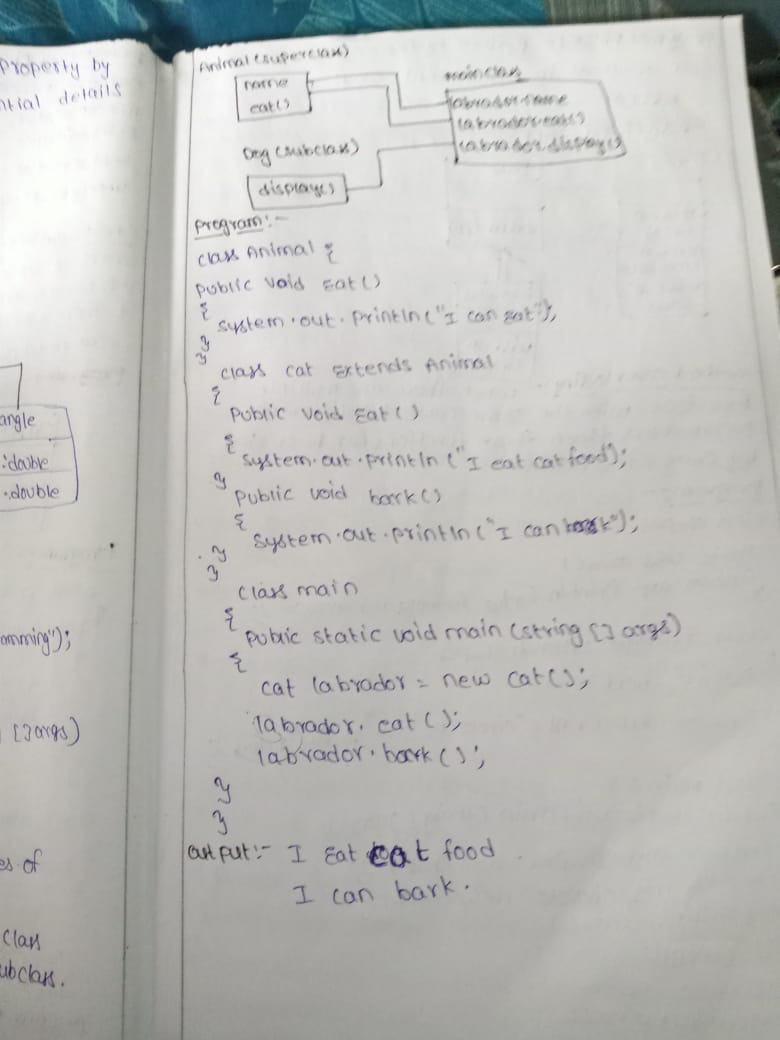 Property by
ntial details
angle
:double
.double
omming");
[]args)
es of
class
ubclass.
Animal (superclass)
name
eat()
main class
labrador.name
labrador.eat()
labrador.display()
Dog (subclass)
display()
Program:-
class Animal {
public void Eat()
{
system.out.println("I can Eat");
}
}
class cat Extends Animal
{
Public void Eat()
{
system.out.println ("I eat cat food);
}
Public void bark()
{
system.out.println("I can bark");
}
}
class main
{
Public static void main (string [] args)
{
cat labrador = new cat();
labrador. eat ();
labrador. bark ();
}
}
output:- I Eat cat food
I can bark.